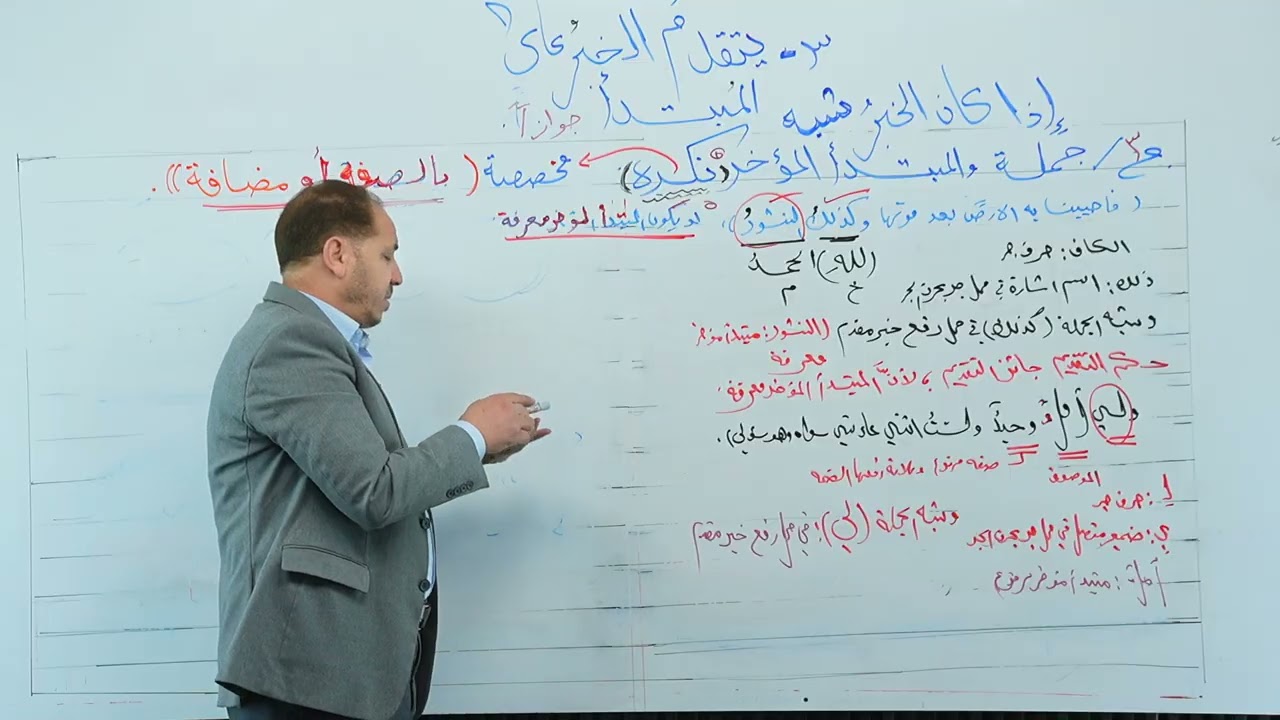 ٣- يتقدم الخبرُ على
المُبتدأ جوازاً
إذا كان الخبرُ شبه
جملة والمبتدأ المؤخر (نكرة) مخصصة (بالصفة أو مضافة)).
فاحيينا به الارضَ بعد موتها وكذلك النشورُ)، أو يكون المبتدأ المؤخر معرفة.
(للهِ) الحمدُ
خ م
الكاف: حرف جر
ذلك: اسم اشارة في محل جر بحرف جر
وشبه الجملة (كذلك) في محل رفع خبر مقدم (النشور: مبتدأ مؤخر
معرفة
حكم التقديم جائز التقديم، لأنَّ المبتدأ المؤخر معرفة.
ولي وحيدٌ ولستُ
الموصوف صفة مرفوعة وعلامة رفعها الضمة
لـ: حرف جر
ي: ضمير متصل في محل جر بحرف الجر وشبه الجملة (لي): في محل رفع خبر مقدم
مبتدأ مؤخر مرفوع